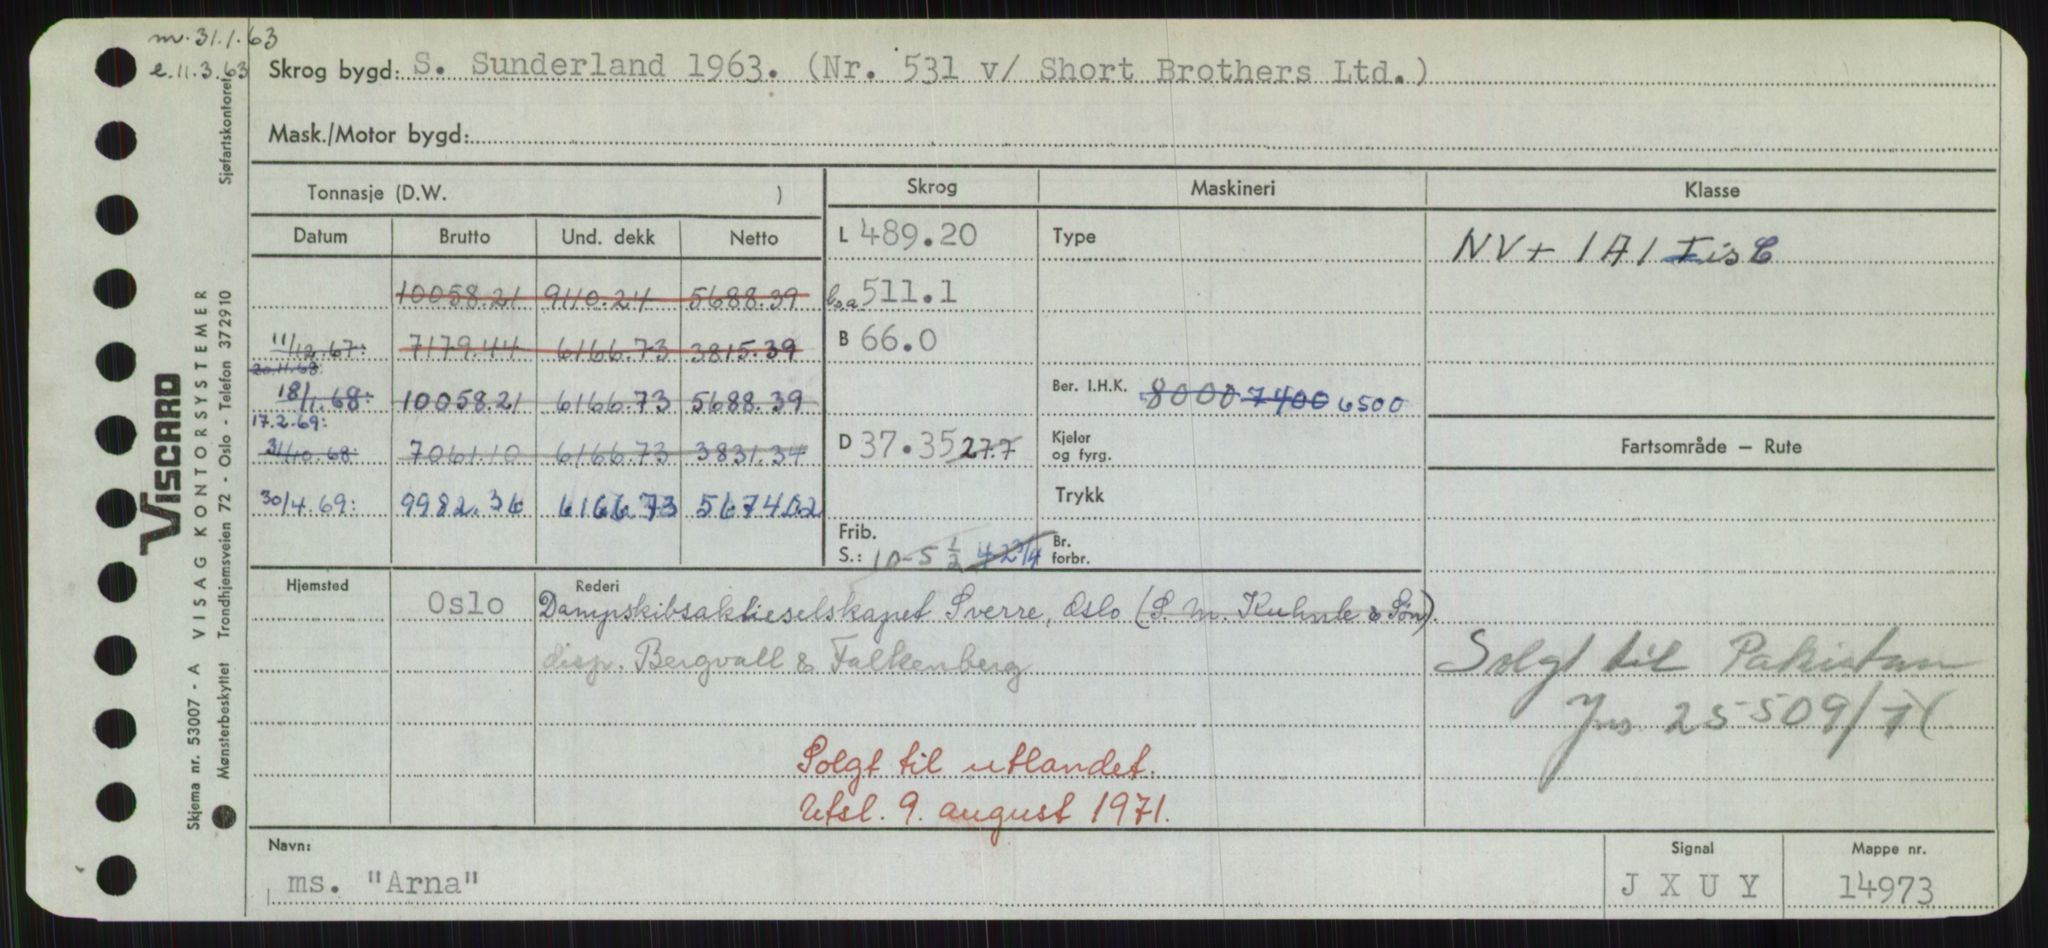 m. 31.1.63
e. 11.3.63
Skrog bygd: S. Sunderland 1963. (Nr. 531 v/ Short Brothers Ltd.)
Mask./Motor bygd:
Tonnasje (D.W. )
Skrog Maskineri Klasse
Datum Brutto Und. dekk Netto
L 489.20 Type NV + 1A1 Is C
10058.21 9110.24 5688.39 b.a. 511.1
11/12.67: 7179.44 6166.73 3815.39 B 66.0
20.11.68
18/1.68: 10058.21 6166.73 5688.39 Ber. I.H.K. 8000 7400 6500
17.2.69:
31/10.68 7061.10 6166.73 3831.34 D 37.35 27.7 Kjeler og fyrg. Fartsområde – Rute
30/4.69: 9982.36 6166.73 5674.02 Trykk
Frib. S.: 10-5 1/2 4 2 3/4 Br. forbr.
Hjemsted Oslo Rederi Dampskibsaktieselskapet Sverre, Oslo (S. M. Kuhnle & Søn).
disp. Bergvall & Falkenberg
Solgt til Pakistan
Jnr 25509/71
Solgt til utlandet.
Utsl. 9. august 1971.
Navn: ms. "Arna"
Signal J X U Y
Mappe nr. 14973
VISCARD VISAG KONTORSYSTEMER Sjøfartskontoret
Trondhjemsveien 72 - Oslo - Telefon 372910
Skjema nr. 53007 - A
Mønsterbeskyttet